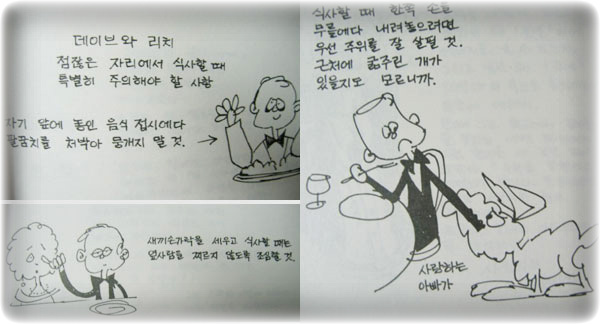 데이브와 리치
점잖은 자리에서 식사할 때
특별히 주의해야 할 사항
자기 앞에 놓인 음식 접시에다
팔꿈치를 처박아 뭉개지 말 것.
새끼손가락을 세우고 식사할 때는
옆사람을 찌르지 않도록 조심할 것.
식사할 때 한쪽 손을
무릎에다 내려놓으려면
우선 주위를 잘 살필 것.
근처에 굶주린 개가
있을지도 모르니까.
사랑하는
아빠가